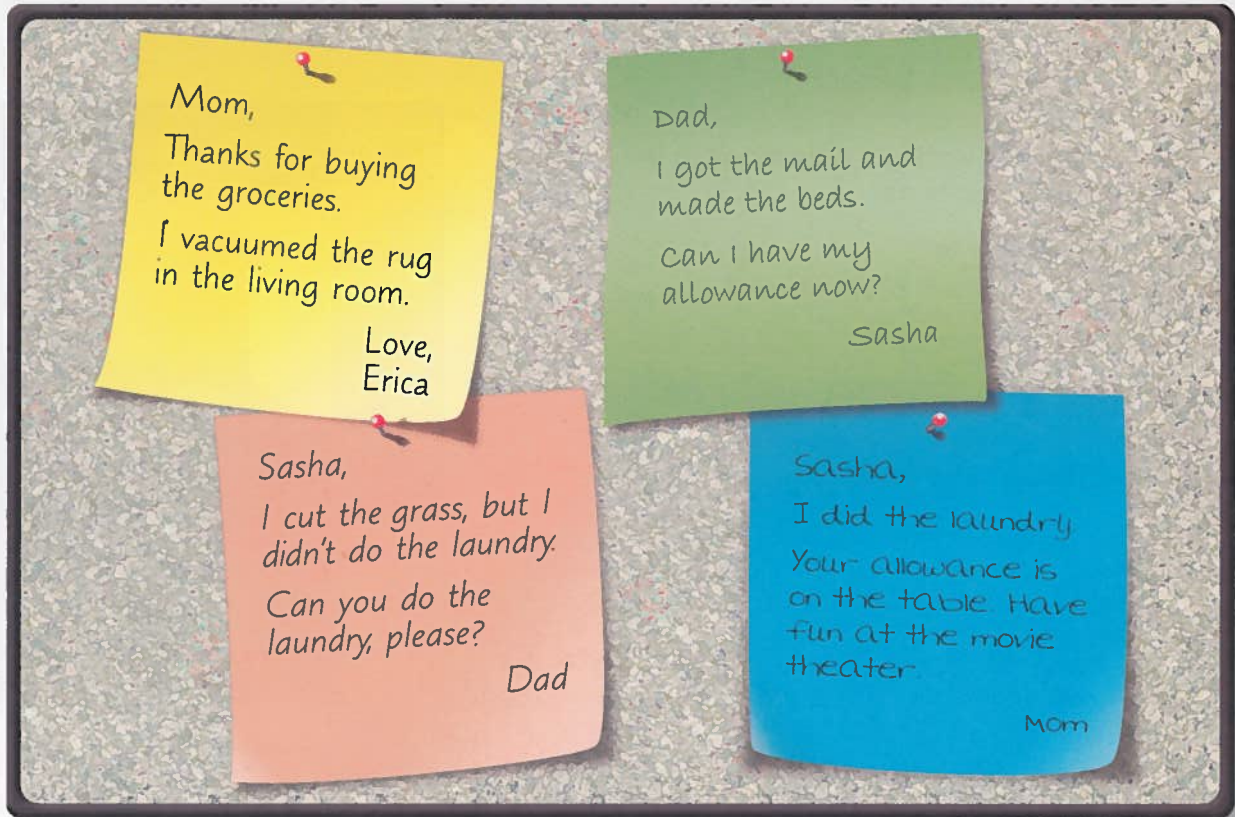 Mom,
Thanks for buying
the groceries.
I vacuumed the rug
in the living room.
Love,
Erica
Dad,
I got the mail and
made the beds.
Can I have my
allowance now?
Sasha
Sasha,
I cut the grass, but I
didn't do the laundry.
Can you do the
laundry, please?
Dad
Sasha,
I did the laundry.
Your allowance is
on the table. Have
fun at the movie
theater.
Mom